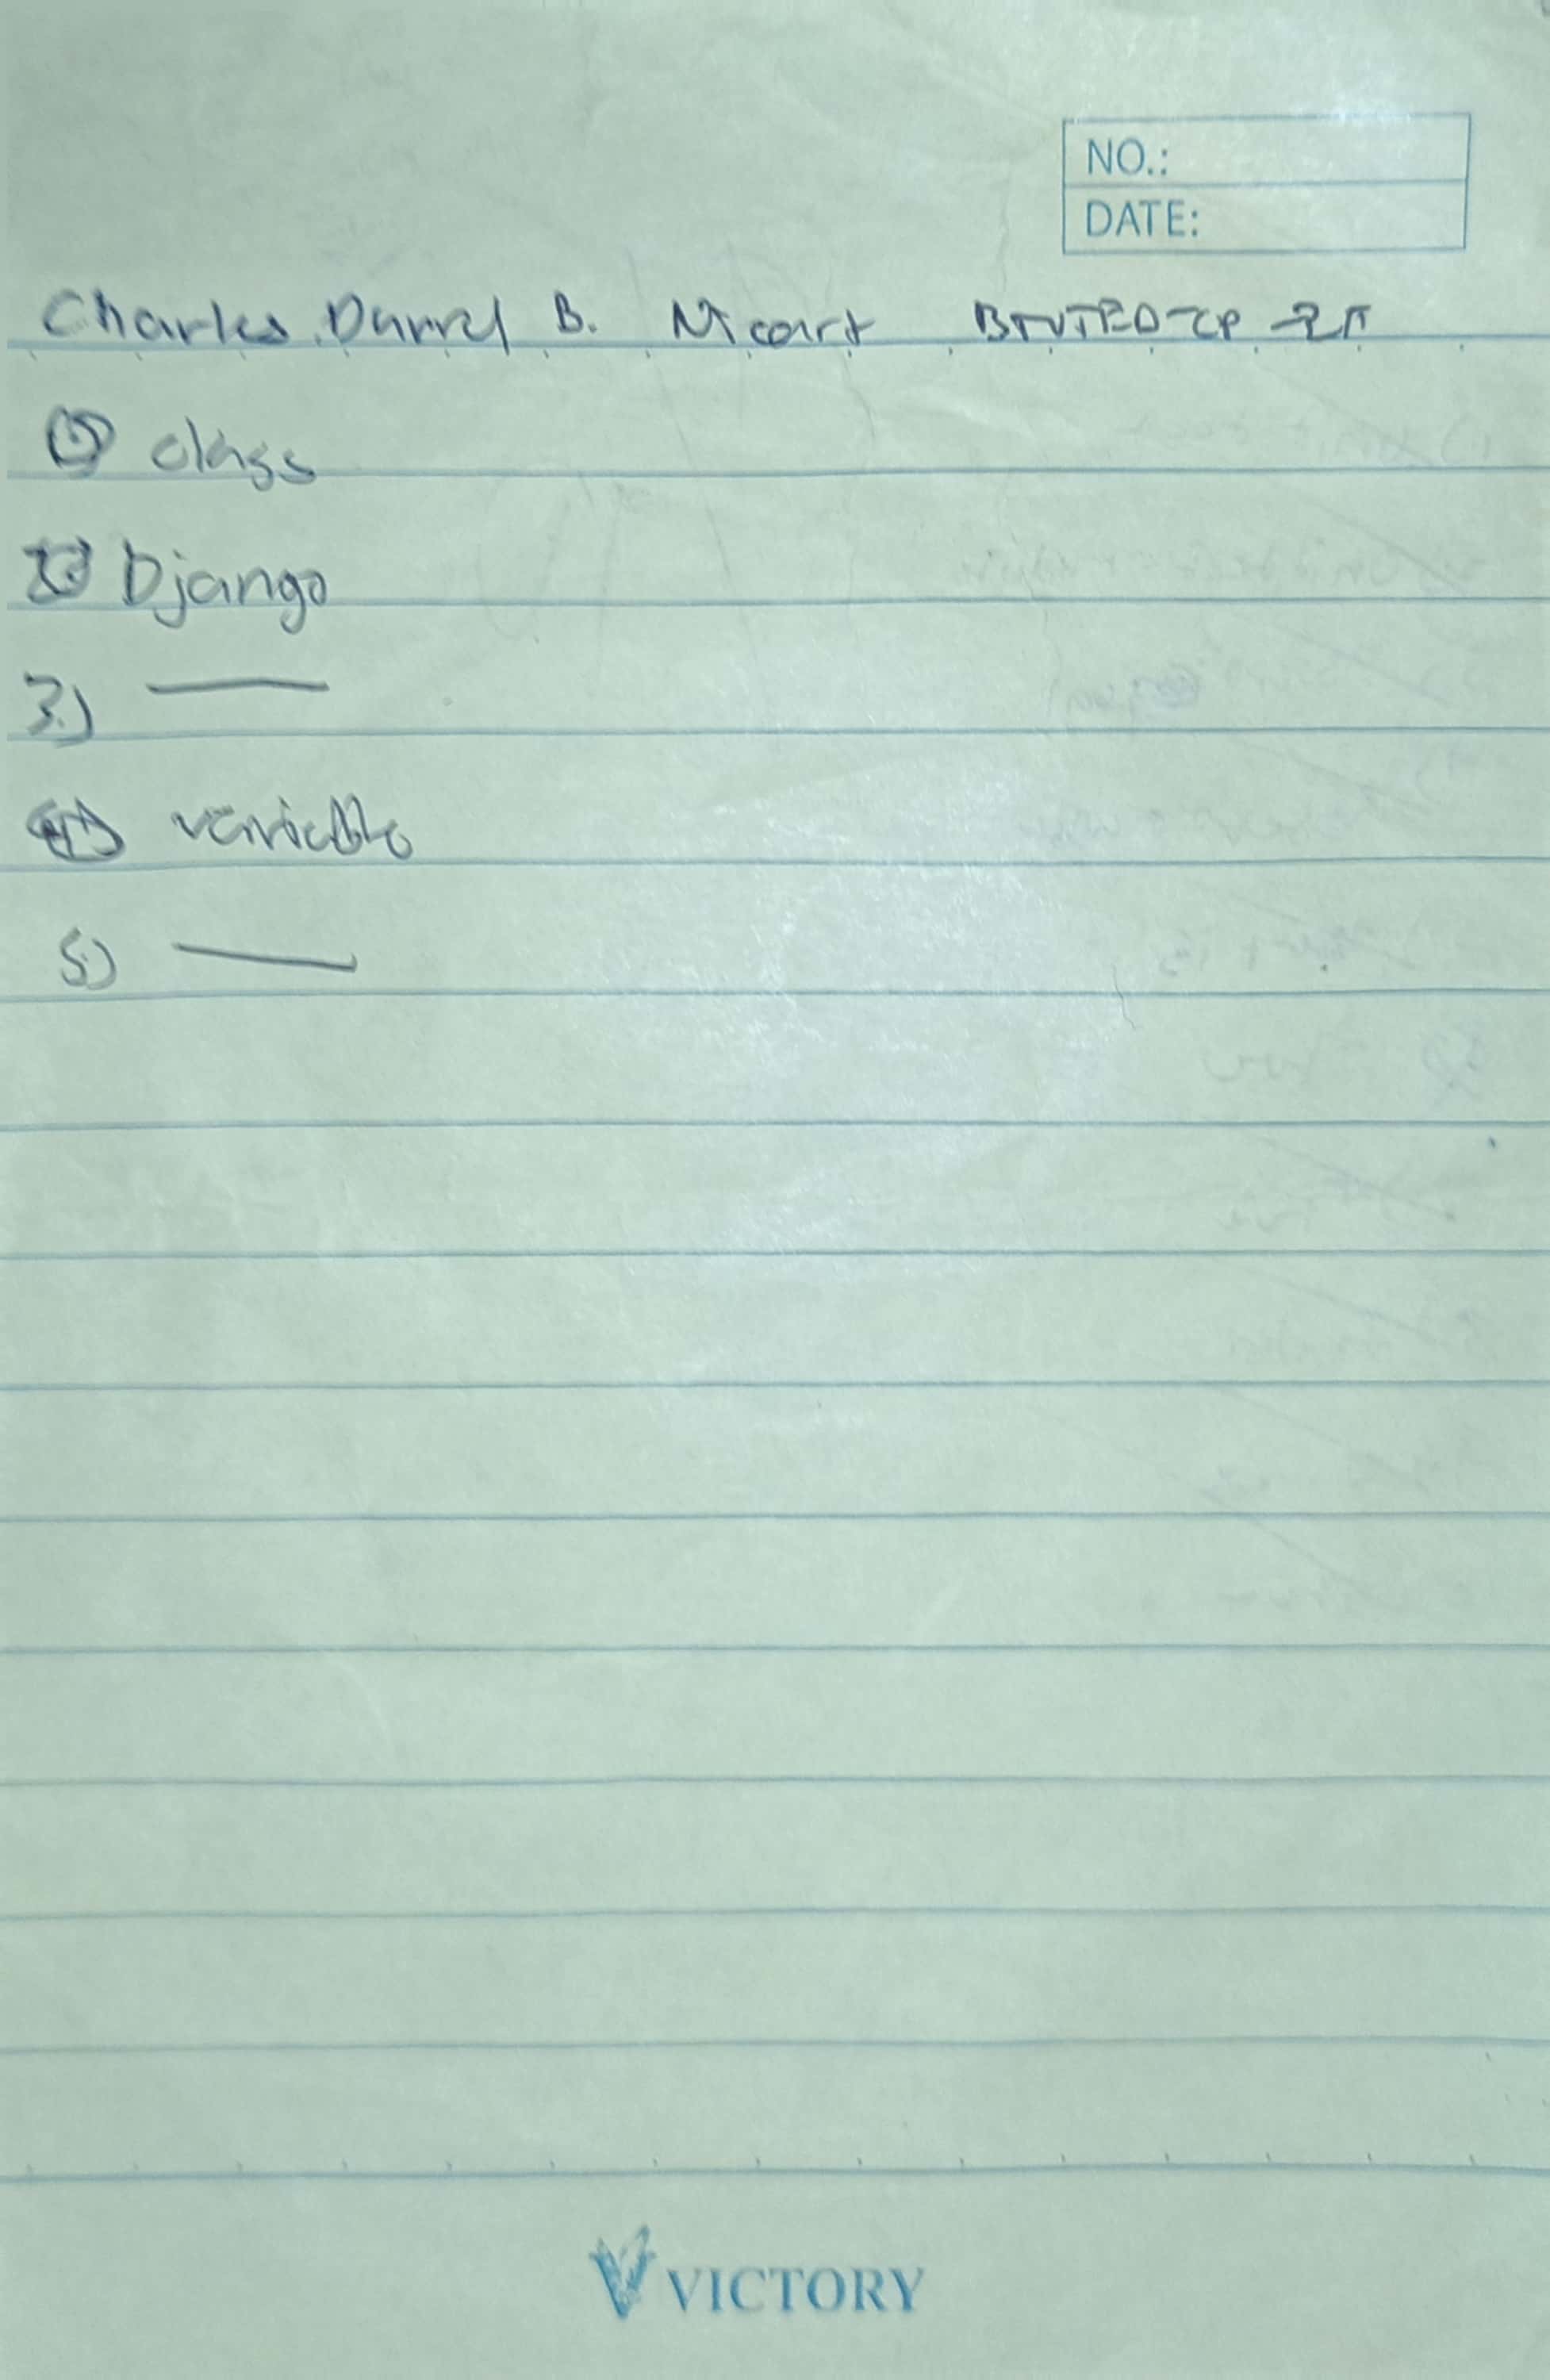 NO.:
DATE:
Charles Darrel B. Nicart BTVTED-CP-2A
class
Django
3.) —
variable
5.) —
VICTORY